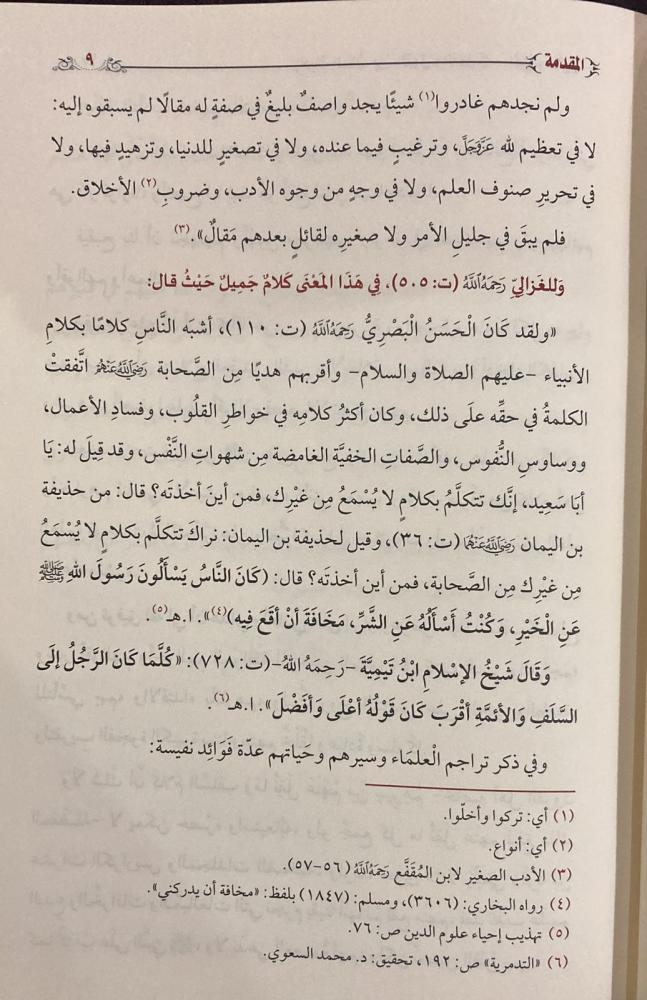 المقدمة
٩
ولم نجدهم غادروا(١) شيئًا يجد واصفٌ بليغٌ في صفةٍ له مقالًا لم يسبقوه إليه:
لا في تعظيم لله عَزَّوَجَلَّ، وترغيبٍ فيما عنده، ولا في تصغيرٍ للدنيا، وتزهيدٍ فيها، ولا
في تحريرِ صنوف العلم، ولا في وجهٍ من وجوه الأدب، وضروبِ(٢) الأخلاق.
فلم يبقَ في جليلِ الأمر ولا صغيرِه لقائلٍ بعدهم مَقالٌ».(٣)
وَللغَزاليِّ رَحِمَهُ اللَّهُ (ت: ٥٠٥)، فِي هَذَا المَعْنَى كَلامٌ جَمِيلٌ حَيْثُ قال:
«ولقد كَانَ الْحَسَنُ الْبَصْرِيُّ رَحِمَهُ اللَّهُ (ت: ١١٠)، أشبَه النَّاسِ كلامًا بكلامِ
الأنبياء -عليهم الصلاة والسلام- وأقربهم هديًا مِن الصَّحابة رَضِيَ اللَّهُ عَنْهُمْ اتَّفقتْ
الكلمةُ في حقِّه علَى ذلك، وكان أكثرُ كلامِه في خواطرِ القلُوب، وفسادِ الأعمال،
ووساوسِ النُّفوس، والصَّفاتِ الخفيَّة الغامضة مِن شهواتِ النَّفْس، وقد قِيلَ له: يَا
أبَا سَعِيد، إنَّك تتكلَّمُ بكلامٍ لا يُسْمَعُ مِن غيْرِك، فمن أينَ أخذتَه؟ قال: من حذيفة
بن اليمان رَضِيَ اللَّهُ عَنْهُمَا (ت: ٣٦)، وقيل لحذيفة بن اليمان: نراكَ تتكلَّم بكلامٍ لا يُسْمَعُ
مِن غيْرِك مِن الصَّحابة، فمن أين أخذتَه؟ قال: (كَانَ النَّاسُ يَسْأَلُونَ رَسُولَ اللهِ ﷺ
عَنِ الْخَيْرِ، وَكُنْتُ أَسْأَلُهُ عَنِ الشَّرِّ، مَخَافَةَ أَنْ أَقَعَ فِيه)(٤)». ا.هـ(٥).
وَقَالَ شَيْخُ الإِسْلامِ ابْنُ تَيْمِيَّةَ -رَحِمَهُ اللهُ-(ت: ٧٢٨): «كُلَّمَا كَانَ الرَّجُلُ إلَى
السَّلَفِ وَالأئمَّةِ أقْرَبَ كَانَ قَوْلُهُ أَعْلَى وَأَفْضَلَ». ا.هـ(٦).
وفي ذكر تراجم الْعلمَاء وسيرهم وحَياتهم عدّة فَوَائِد نفيسة:
(١) أي: تركوا وأخلّوا.
(٢) أي: أنواع.
(٣) الأدب الصغير لابن المُقَفَّع رَحِمَهُ اللَّهُ (٥٦-٥٧).
(٤) رواه البخاري: (٣٦٠٦)، ومسلم: (١٨٤٧) بلفظ: «مخافة أن يدركني».
(٥) تهذيب إحياء علوم الدين ص: ٧٦.
(٦) «التدمرية» ص: ١٩٢، تحقيق: د. محمد السعوي.